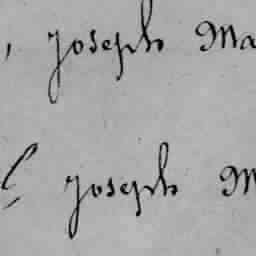 , Joseph Ma
Joseph M